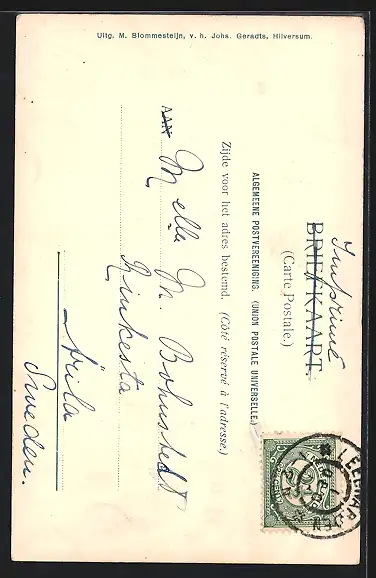 Uitg. M. Blommesteijn, v. h. Johs. Geradts, Hilversum.
Imprimé
BRIEFKAART.
(Carte Postale.)
ALGEMEENE POSTVEREENIGING. (UNION POSTALE UNIVERSELLE.)
Zijde voor het adres bestemd. (Côté réservé à l'adresse.)
AAN
Melle M. Bohnstedt
Kinkesta
Sweden.